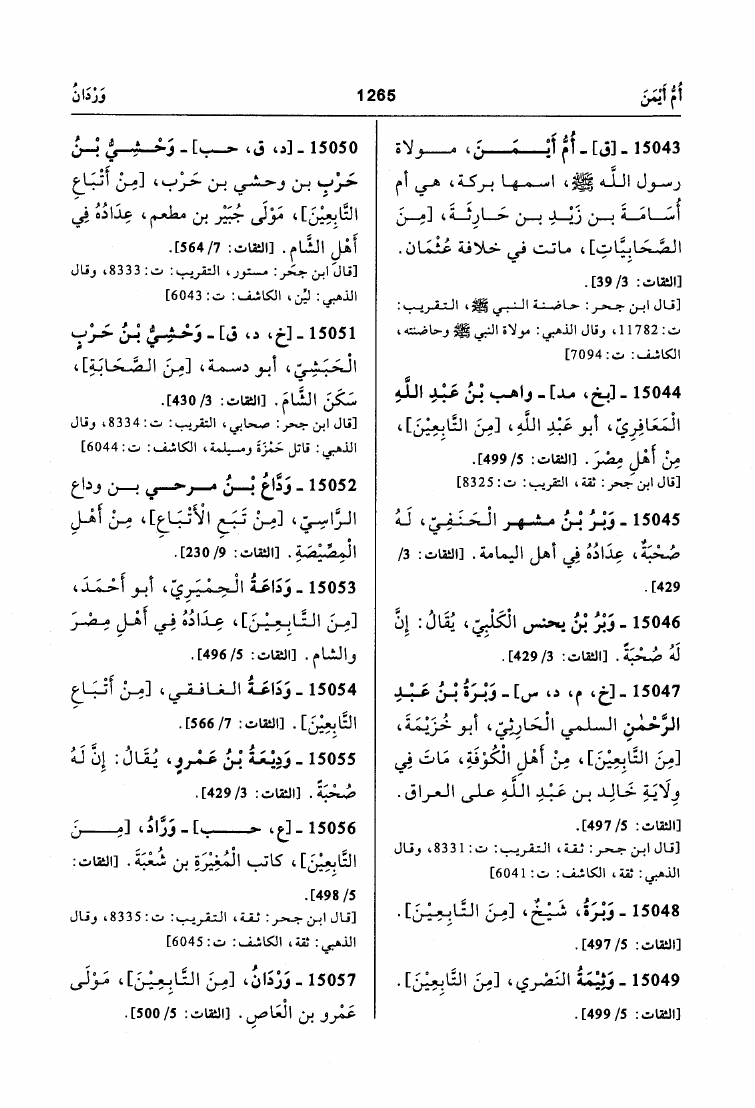 أُمُّ أَيْمَنَ 1265 وَرْدَانُ
15043 ـ [ق] ـ أُمُّ أَيْـمَـنَ، مـولاة
رسول اللـه ﷺ، اسمها بركة، هي أم
أُسَـامَـةَ بـن زَيْـدِ بـن حَـارِثَـةَ، [مِـنَ
الصَّحَابِيَّاتِ]، ماتت في خلافة عُثْمَان.
[الثقات: 3/ 39].
[قال ابن جحر: حاضنة النبي ﷺ، التقريب:
ت: 11782، وقال الذهبي: مولاة النبي ﷺ وحاضنته،
الكاشف: ت: 7094]
15044 ـ [بخ، مد] ـ واهب بْنُ عَبْدِ اللَّهِ
الْمَعَافِرِيّ، أبو عَبْدِ اللَّهِ، [مِنَ التَّابِعِيْنَ]،
مِنْ أَهْلِ مِصْرَ. [الثقات: 5/ 499].
[قال ابن جحر: ثقة، التقريب: ت: 8325]
15045 ـ وَبْرُ بْنُ مشهر الْحَنَفِيّ، لَهُ
صُحْبَةٌ، عِدَادُهُ فِي أهل اليمامة. [الثقات: 3/
429].
15046 ـ وَبْرُ بْنُ يحنس الْكَلْبِيّ، يُقَالُ: إِنَّ
لَهُ صُحْبَةً. [الثقات: 3/ 429].
15047 ـ [خ، م، د، س] ـ وَبْرَةُ بْنُ عَبْدِ
الرَّحْمٰنِ السلمي الْحَارِثِيّ، أبو خُزَيْمَةَ،
[مِنَ التَّابِعِيْنَ]، مِنْ أَهْلِ الْكُوْفَةِ، مَاتَ فِي
وِلَايَةِ خَالِدِ بن عَبْدِ اللَّهِ على العراق.
[الثقات: 5/ 497].
[قال ابن جحر: ثقة، التقريب: ت: 8331، وقال
الذهبي: ثقة، الكاشف: ت: 6041]
15048 ـ وَبْرَةُ، شَيْخٌ، [مِنَ التَّابِعِيْنَ].
[الثقات: 5/ 497].
15049 ـ وَثِيْمَةُ النَصْرِي، [مِنَ التَّابِعِيْنَ].
[الثقات: 5/ 499].
15050 ـ [د، ق، حـب] ـ وَحْـشِـيُّ بْـنُ
حَرْبِ بن وحشي بن حَرْب، [مِنْ أَتْبَاعِ
التَّابِعِيْنَ]، مَوْلَى جُبَيْر بن مطعم، عِدَادُهُ فِي
أَهْلِ الشَّام. [الثقات: 7/ 564].
[قال ابن جحَر: مستور، التقريب: ت: 8333، وقال
الذهبي: ليّن، الكاشف: ت: 6043]
15051 ـ [خ، د، ق] ـ وَحْشِيُّ بْنُ حَرْبٍ
الْحَبَشِيّ، أبو دسمة، [مِنَ الصَّحَابَةِ]،
سَكَنَ الشَّامَ. [الثقات: 3/ 430].
[قال ابن جحر: صحابي، التقريب: ت: 8334، وقال
الذهبي: قاتل حَمْزَةَ ومسيلمة، الكاشف: ت: 6044]
15052 ـ وَدَّاعُ بْـنُ مـرحـي بـن وداع
الرَّاسِبِيّ، [مِنْ تَبَعِ الْأَتْبَاعِ]، مِنْ أَهْلِ
الْمِصِّيْصَةِ. [الثقات: 9/ 230].
15053 ـ وَدَاعَةُ الْحِمْيَرِيّ، أبو أَحْمَدَ،
[مِنَ التَّابِعِيْنَ]، عِدَادُهُ فِي أَهْلِ مِصْرَ
والشام. [الثقات: 5/ 496].
15054 ـ وَدَاعَةُ الغافقي، [مِنْ أَتْبَاعِ
التَّابِعِيْنَ]. [الثقات: 7/ 566].
15055 ـ وَدِيْعَةُ بْنُ عَمْرٍو، يُقَالُ: إِنَّ لَهُ
صُحْبَةً. [الثقات: 3/ 429].
15056 ـ [ع، حـب] ـ وَرَّادُ، [مِـنَ
التَّابِعِيْنَ]، كاتب الْمُغِيْرَةِ بن شُعْبَةَ. [الثقات:
5/ 498].
[قال ابن جحر: ثقة، التقريب: ت: 8335، وقال
الذهبي: ثقة، الكاشف: ت: 6045]
15057 ـ وَرْدَانُ، [مِنَ التَّابِعِيْنَ]، مَوْلَى
عَمْرو بن الْعَاصِ. [الثقات: 5/ 500].